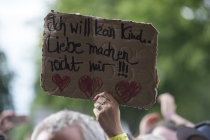 Ich will kan Kind..
Liebe machen
nocht mir !!!